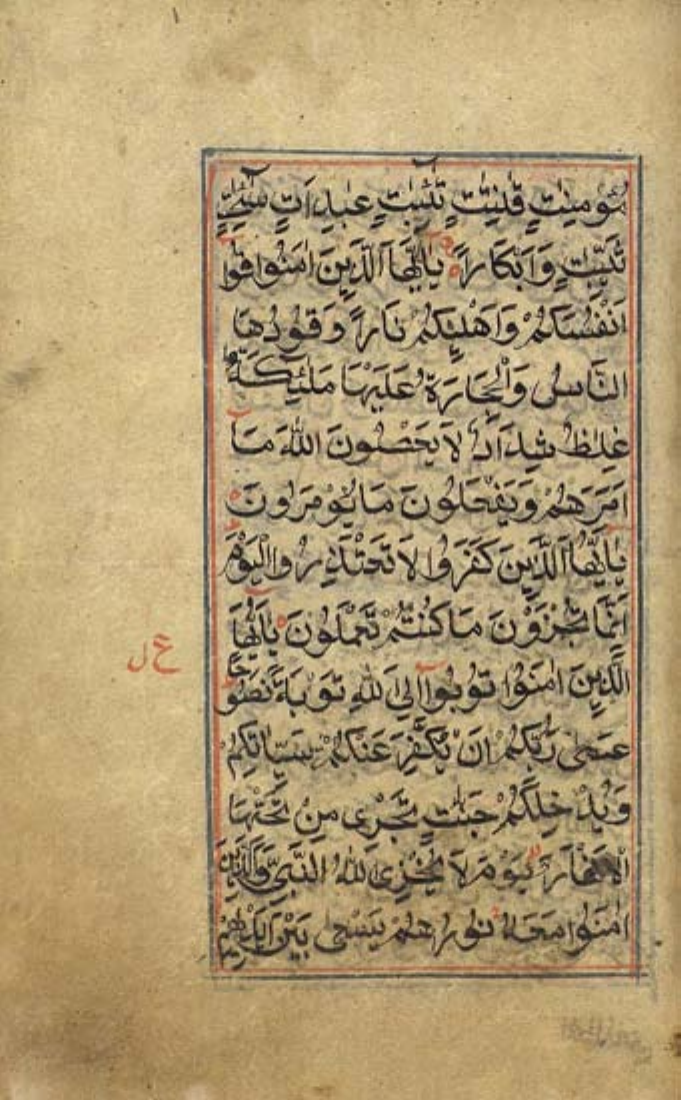 مُؤْمِنٰتٍ قٰنِتٰتٍ تٰئِبٰتٍ عٰبِدَاتٍ سٰئِحٰتٍ
ثَيِّبٰتٍ وَاَبْكَارًا يٰاَيُّهَا الَّذِينَ اٰمَنُوا قُوا
اَنْفُسَكُمْ وَاَهْلِيكُمْ نَارًا وَقُودُهَا
النَّاسُ وَالْحِجَارَةُ عَلَيْهَا مَلٰئِكَةٌ
غِلَاظٌ شِدَادٌ لَا يَعْصُونَ اللّٰهَ مَا
اَمَرَهُمْ وَيَفْعَلُونَ مَا يُؤْمَرُونَ
يٰاَيُّهَا الَّذِينَ كَفَرُوا لَا تَعْتَذِرُوا الْيَوْمَ
اِنَّمَا تُجْزَوْنَ مَا كُنْتُمْ تَعْمَلُونَ يٰاَيُّهَا
ع ل
الَّذِينَ اٰمَنُوا تُوبُوا اِلَى اللّٰهِ تَوْبَةً نَصُوحًا
عَسٰى رَبُّكُمْ اَنْ يُكَفِّرَ عَنْكُمْ سَيِّاٰتِكُمْ
وَيُدْخِلَكُمْ جَنّٰتٍ تَجْرِى مِنْ تَحْتِهَا
الْاَنْهَارُ يَوْمَ لَا يُخْزِى اللّٰهُ النَّبِىَّ وَالَّذِينَ
اٰمَنُوا مَعَهُ نُورُهُمْ يَسْعٰى بَيْنَ اَيْدِيهِمْ